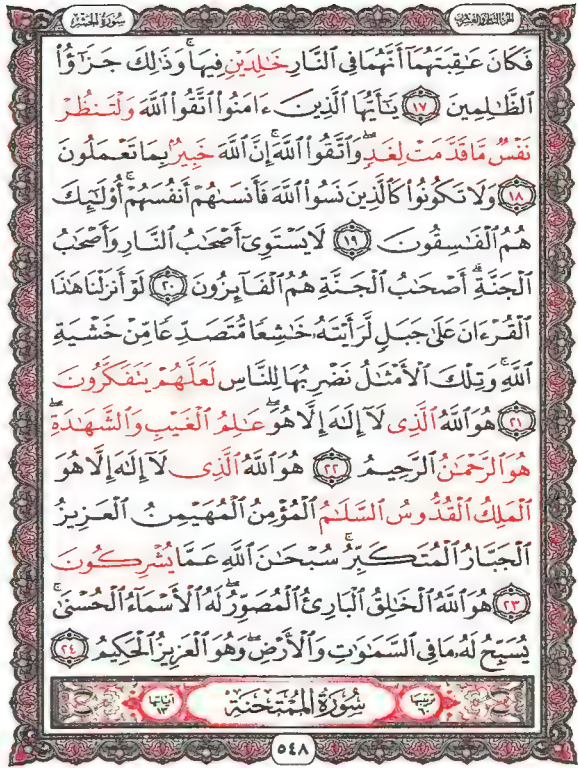 سُورَةُ الحَشْر الجُزءُ الثَّامِنُ وَالعِشْرُونَ
فَكَانَ عَٰقِبَتَهُمَآ أَنَّهُمَا فِى ٱلنَّارِ خَٰلِدَيْنِ فِيهَا ۚ وَذَٰلِكَ جَزَٰٓؤُا۟
ٱلظَّٰلِمِينَ ١٧ يَٰٓأَيُّهَا ٱلَّذِينَ ءَامَنُوا۟ ٱتَّقُوا۟ ٱللَّهَ وَلْتَنظُرْ
نَفْسٌ مَّا قَدَّمَتْ لِغَدٍ ۖ وَٱتَّقُوا۟ ٱللَّهَ ۚ إِنَّ ٱللَّهَ خَبِيرٌۢ بِمَا تَعْمَلُونَ
١٨ وَلَا تَكُونُوا۟ كَٱلَّذِينَ نَسُوا۟ ٱللَّهَ فَأَنسَىٰهُمْ أَنفُسَهُمْ ۚ أُو۟لَٰٓئِكَ
هُمُ ٱلْفَٰسِقُونَ ١٩ لَا يَسْتَوِىٓ أَصْحَٰبُ ٱلنَّارِ وَأَصْحَٰبُ
ٱلْجَنَّةِ ۚ أَصْحَٰبُ ٱلْجَنَّةِ هُمُ ٱلْفَآئِزُونَ ٢٠ لَوْ أَنزَلْنَا هَٰذَا
ٱلْقُرْءَانَ عَلَىٰ جَبَلٍ لَّرَأَيْتَهُۥ خَٰشِعًا مُّتَصَدِّعًا مِّنْ خَشْيَةِ
ٱللَّهِ ۚ وَتِلْكَ ٱلْأَمْثَٰلُ نَضْرِبُهَا لِلنَّاسِ لَعَلَّهُمْ يَتَفَكَّرُونَ
٢١ هُوَ ٱللَّهُ ٱلَّذِى لَآ إِلَٰهَ إِلَّا هُوَ ۖ عَٰلِمُ ٱلْغَيْبِ وَٱلشَّهَٰدَةِ ۖ
هُوَ ٱلرَّحْمَٰنُ ٱلرَّحِيمُ ٢٢ هُوَ ٱللَّهُ ٱلَّذِى لَآ إِلَٰهَ إِلَّا هُوَ
ٱلْمَلِكُ ٱلْقُدُّوسُ ٱلسَّلَٰمُ ٱلْمُؤْمِنُ ٱلْمُهَيْمِنُ ٱلْعَزِيزُ
ٱلْجَبَّارُ ٱلْمُتَكَبِّرُ ۚ سُبْحَٰنَ ٱللَّهِ عَمَّا يُشْرِكُونَ
٢٣ هُوَ ٱللَّهُ ٱلْخَٰلِقُ ٱلْبَارِئُ ٱلْمُصَوِّرُ ۖ لَهُ ٱلْأَسْمَآءُ ٱلْحُسْنَىٰ ۚ
يُسَبِّحُ لَهُۥ مَا فِى ٱلسَّمَٰوَٰتِ وَٱلْأَرْضِ ۖ وَهُوَ ٱلْعَزِيزُ ٱلْحَكِيمُ ٢٤
ترتيبها ٦٠ سُورَةُ المُمْتَحنَة آياتها ١٣
٥٤٨